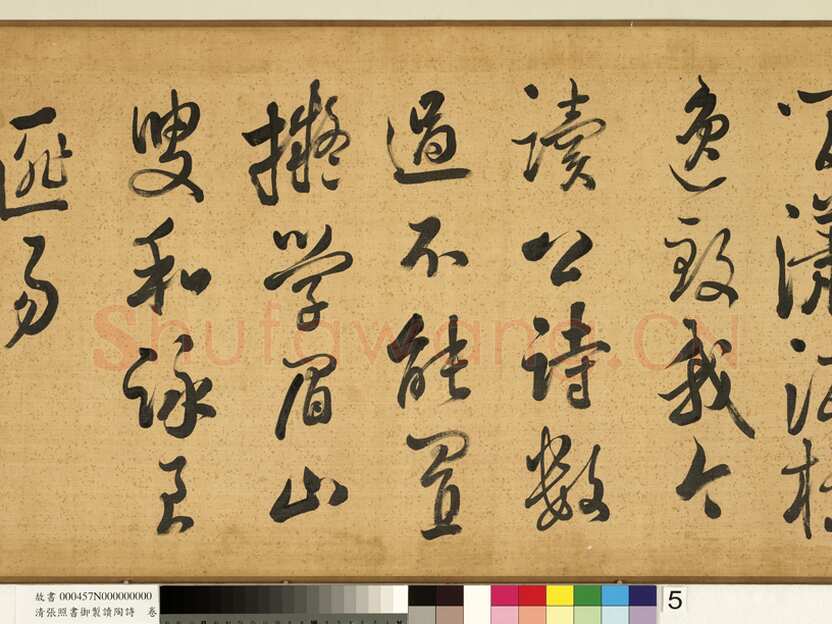 瀟洒極
逸致我今
讀公詩數
過不能置
擬學眉山
叟和詠良
匪易
shufawang.CN
故書 000457N000000000
清張照書御製讀陶詩 卷
5